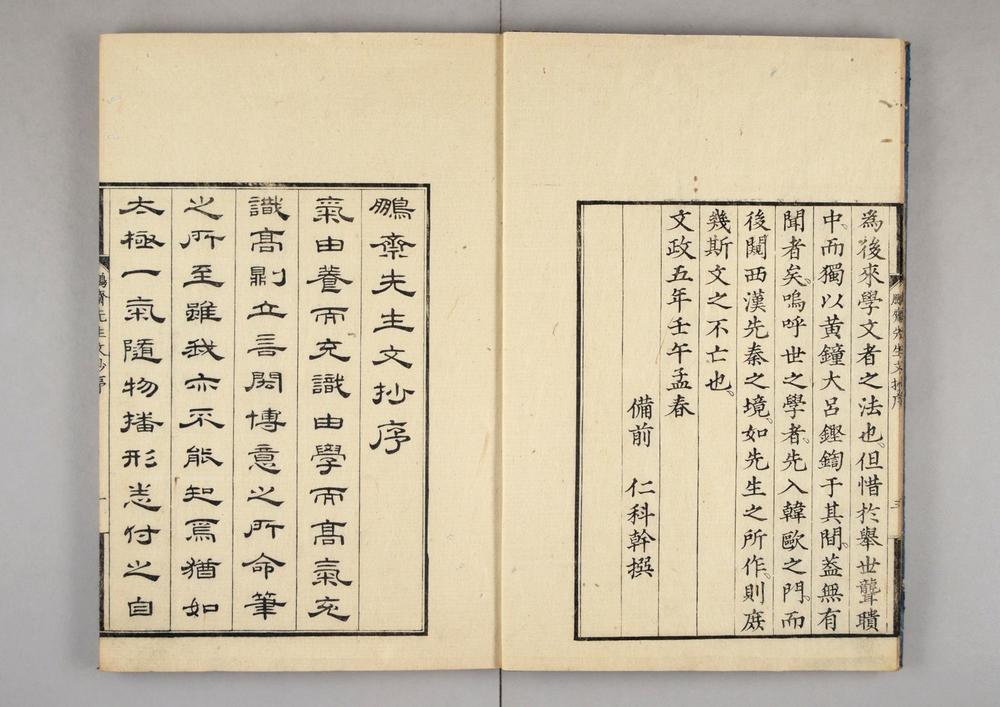 為後來學文者之法也。但惜於舉世聾聵
中。而獨以黃鐘大呂鏗鍧于其間。蓋無有
聞者矣。嗚呼世之學者。先入韓歐之門。而
後闚西漢先秦之境。如先生之所作。則庶
幾斯文之不亡也。
文政五年壬午孟春
備前 仁科幹撰
鵬齋先生文抄序
鵬齋先生文抄序
氣由養而充識由學而高氣充
識高則立言閎博意之所命筆
之所至雖我亦不能知焉猶如
太極一氣隨物播形悉付之自
鵬齋先生文抄序
一